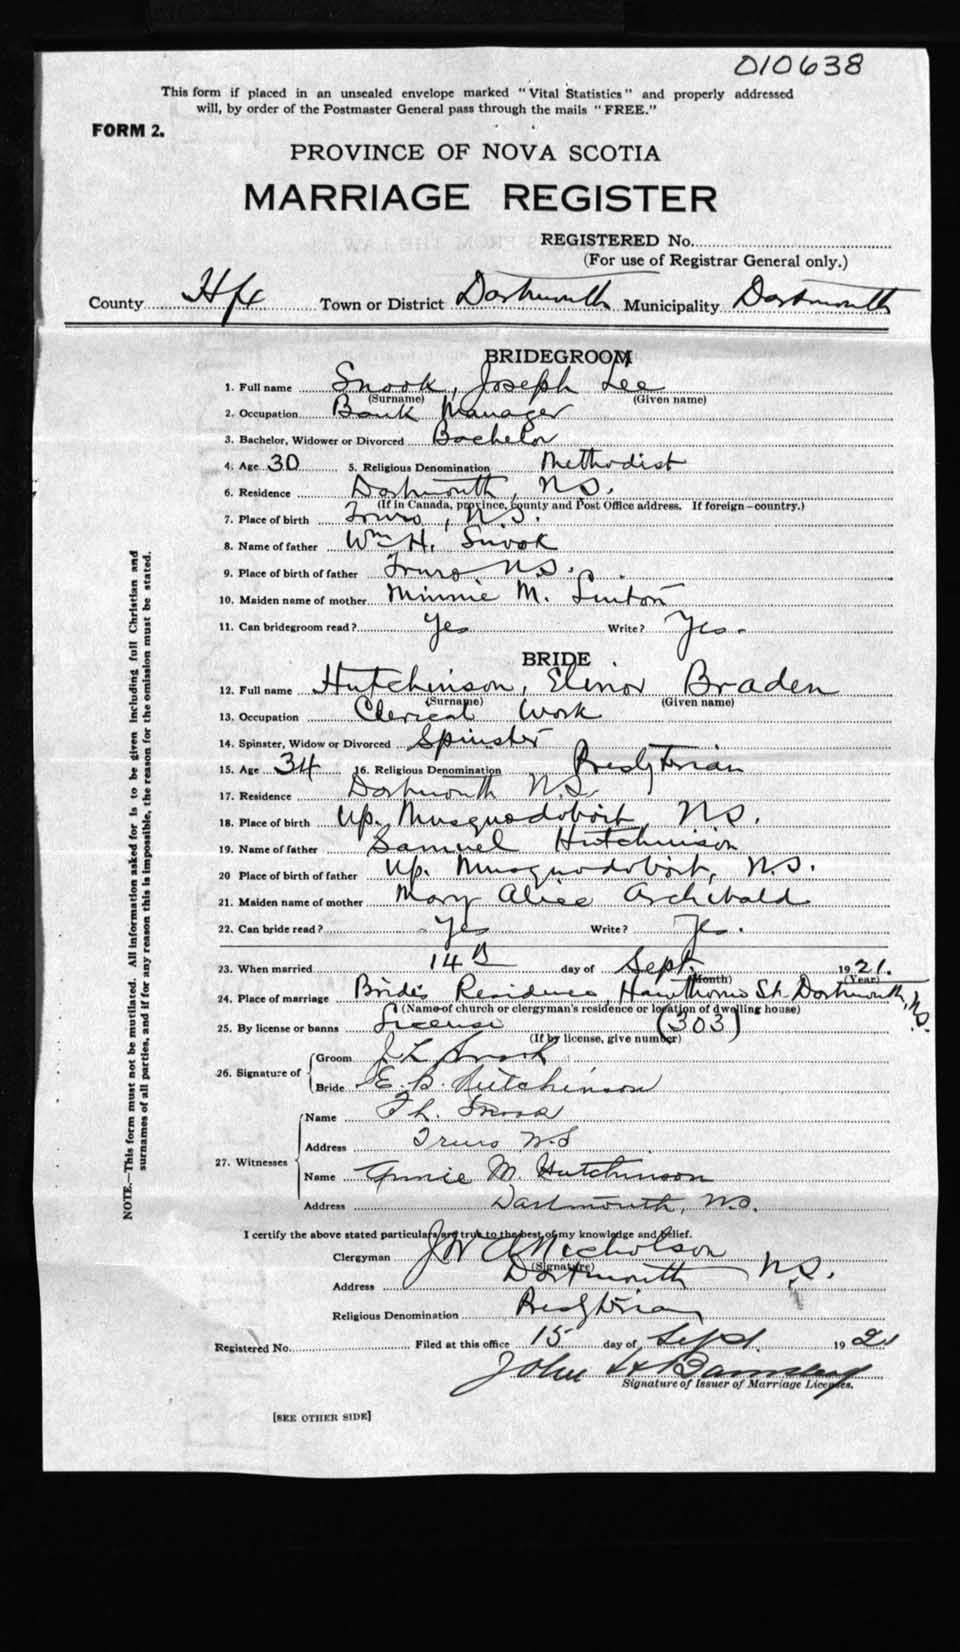 010638
This form if placed in an unsealed envelope marked "Vital Statistics" and properly addressed
will, by order of the Postmaster General pass through the mails "FREE."
FORM 2.
PROVINCE OF NOVA SCOTIA
MARRIAGE REGISTER
REGISTERED No.
(For use of Registrar General only.)
County Hfx Town or District Dartmouth Municipality Dartmouth
BRIDEGROOM
1. Full name Snook, Joseph Lee
(Surname) (Given name)
2. Occupation Bank Manager
3. Bachelor, Widower or Divorced Bachelor
4. Age 30 5. Religious Denomination Methodist
6. Residence Dartmouth, N.S.
(If in Canada, province, county and Post Office address. If foreign—country.)
7. Place of birth Truro, N.S.
8. Name of father Wm H. Snook
9. Place of birth of father Truro N.S.
10. Maiden name of mother Minnie M. Linton
11. Can bridegroom read? Yes Write? Yes.
BRIDE
12. Full name Hutchinson, Elinor Braden
(Surname) (Given name)
13. Occupation Clerical Work
14. Spinster, Widow or Divorced Spinster
15. Age 34 16. Religious Denomination Presbyterian
17. Residence Dartmouth N.S.
18. Place of birth Up. Musquodoboit, N.S.
19. Name of father Samuel Hutchinson
20 Place of birth of father Up. Musquodoboit, N.S.
21. Maiden name of mother Mary Alice Archibald
22. Can bride read? Yes Write? Yes.
23. When married 14th day of Sept. 1921.
(Month) (Year)
24. Place of marriage Bride's Residence, Hawthorne St. Dartmouth, N.S.
(Name of church or clergyman's residence or location of dwelling house)
25. By license or banns License (303)
(If by license, give number)
26. Signature of
Groom J L Snook
Bride E. B. Hutchinson
27. Witnesses
Name Snook
Address Truro N.S
Name Annie M. Hutchinson
Address Dartmouth, N.S.
I certify the above stated particulars are true to the best of my knowledge and belief.
Clergyman J W A Nicholson
(Signature)
Address Dartmouth N.S.
Religious Denomination Presbyterian
Registered No. Filed at this office 15 day of Sept. 1921
John
Signature of Issuer of Marriage Licenses.
[SEE OTHER SIDE]
NOTE.—This form must not be mutilated. All information asked for is to be given including full Christian and
surnames of all parties, and if for any reason this is impossible, the reason for the omission must be stated.